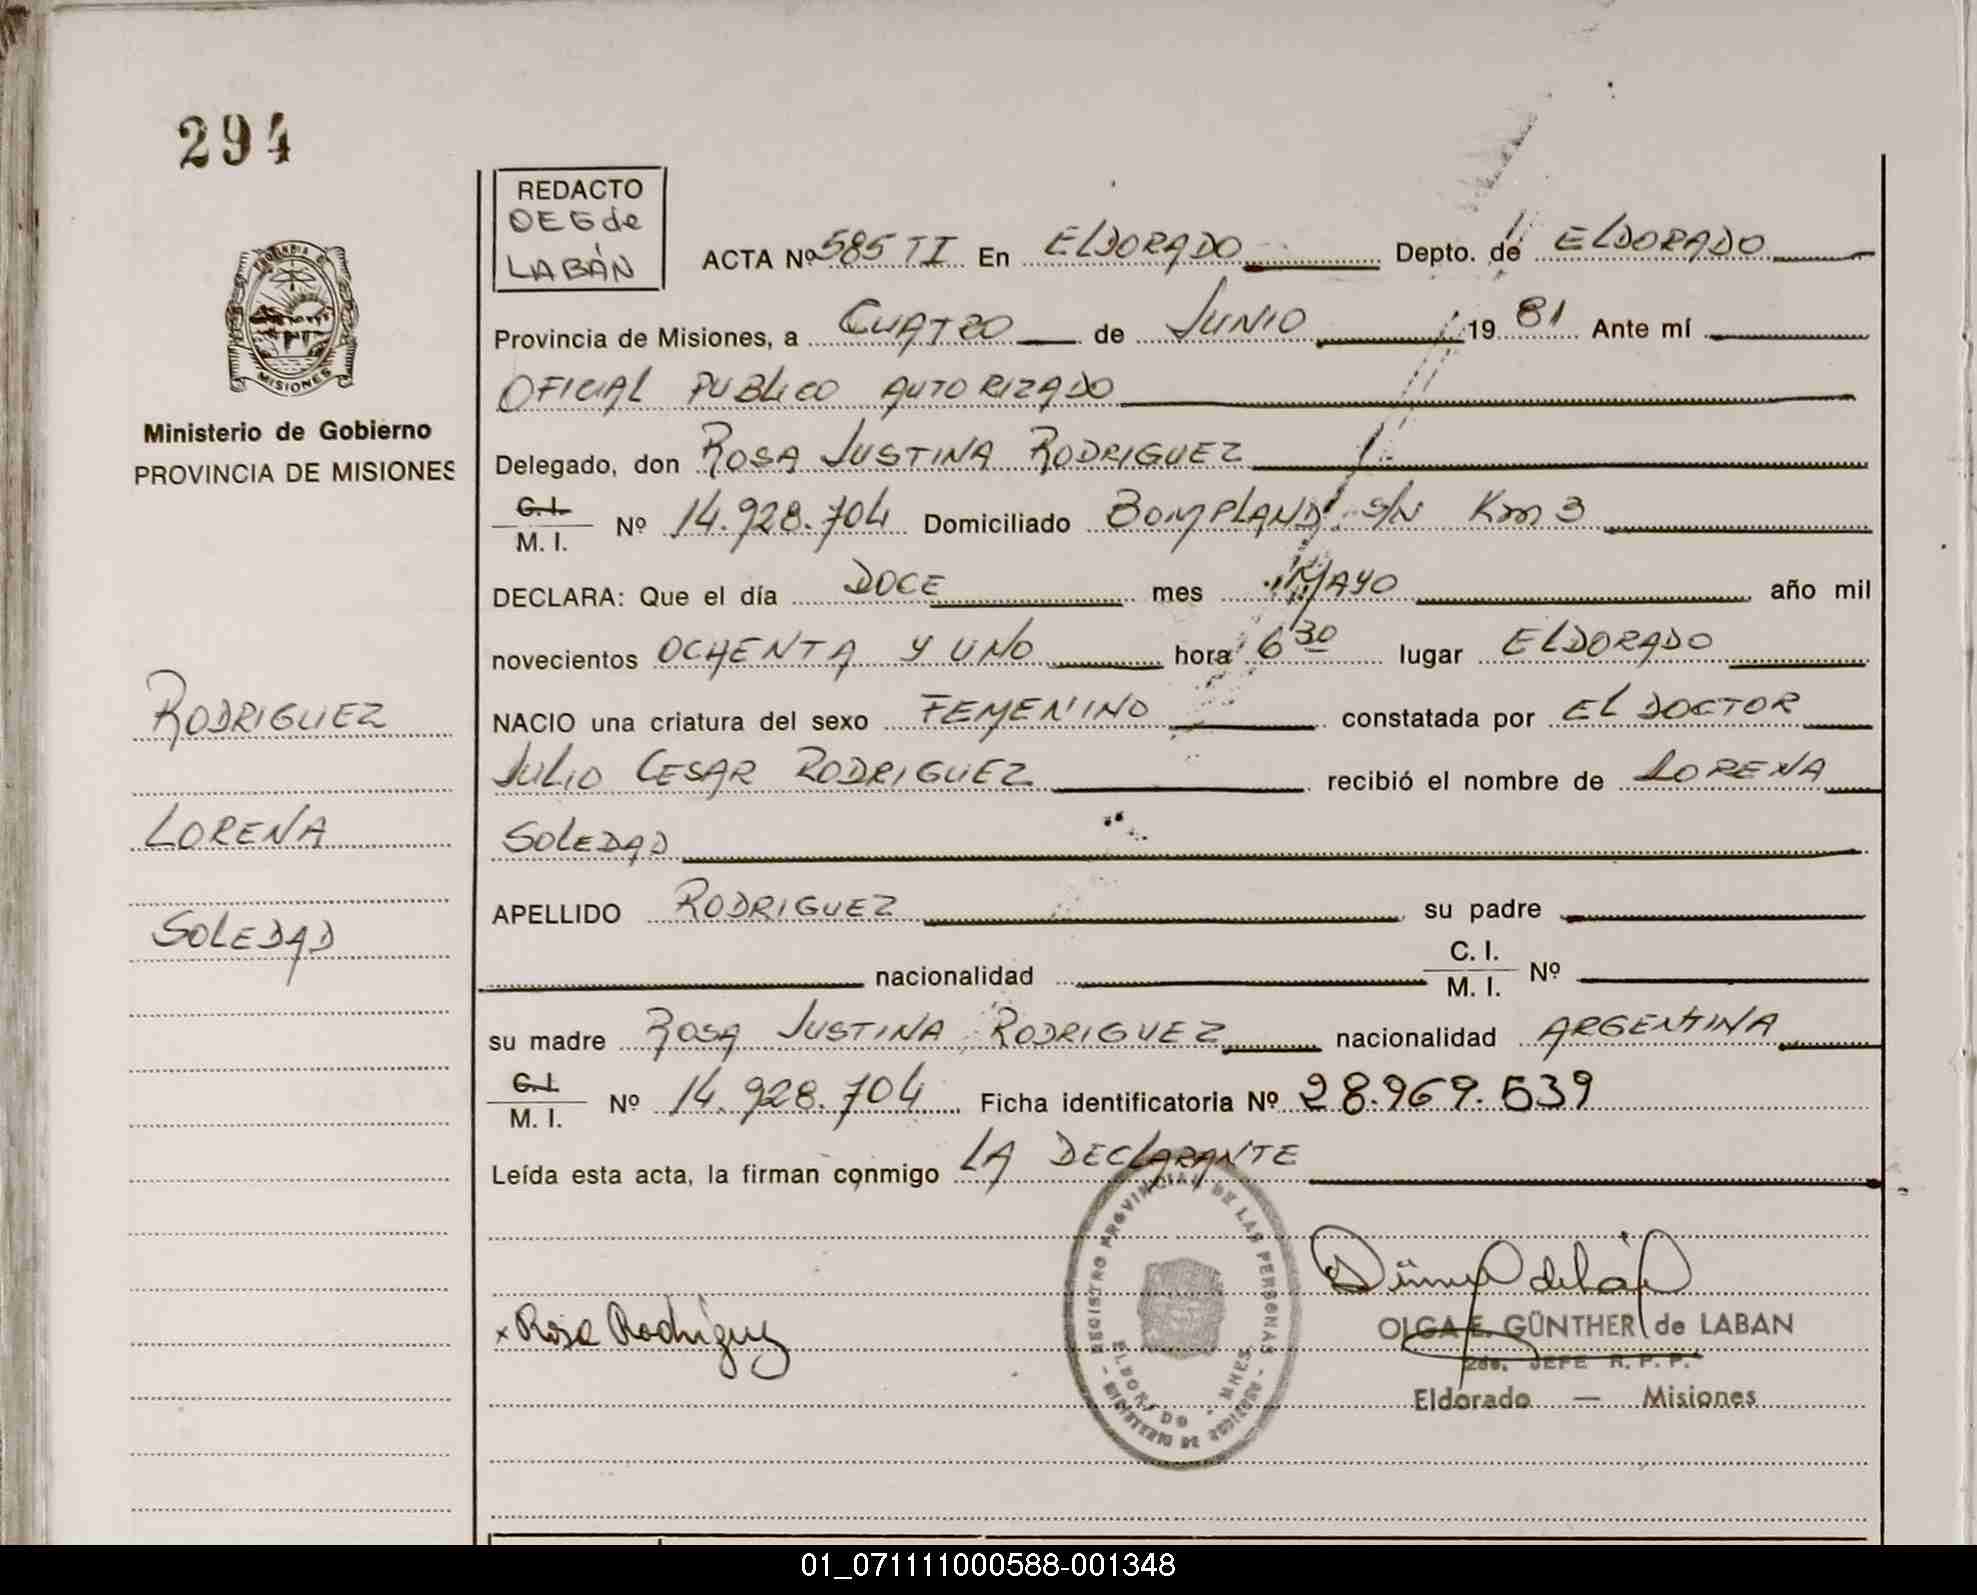 294
REDACTO
OEG de
LABÁN
ACTA Nº 585 TI En ELDORADO Depto. de ELDORADO
Provincia de Misiones, a CUATRO de JUNIO 19 81 Ante mí
OFICIAL PUBLICO AUTORIZADO
Delegado, don ROSA JUSTINA RODRIGUEZ
C. I.
M. I. Nº 14.928.704 Domiciliado BOMPLAND S/N Km 3
DECLARA: Que el día DOCE mes MAYO año mil
novecientos OCHENTA Y UNO hora 6 30 lugar ELDORADO
NACIO una criatura del sexo FEMENINO constatada por EL DOCTOR
JULIO CESAR RODRIGUEZ recibió el nombre de LORENA
SOLEDAD
APELLIDO RODRIGUEZ su padre
nacionalidad C. I.
M. I. Nº
su madre ROSA JUSTINA RODRIGUEZ nacionalidad ARGENTINA
C. I.
M. I. Nº 14.928.704 Ficha identificatoria Nº 28.969.539
Leída esta acta, la firman conmigo LA DECLARANTE
x Rosa Rodriguez
REGISTRO PROVINCIAL DE LAS PERSONAS
ELDORADO - MNES.
OLGA E. GÜNTHER de LABAN
2do. JEFE R. P. P.
Eldorado — Misiones
PROVINCIA DE
MISIONES
Ministerio de Gobierno
PROVINCIA DE MISIONES
RODRIGUEZ
LORENA
SOLEDAD
01_071111000588-001348